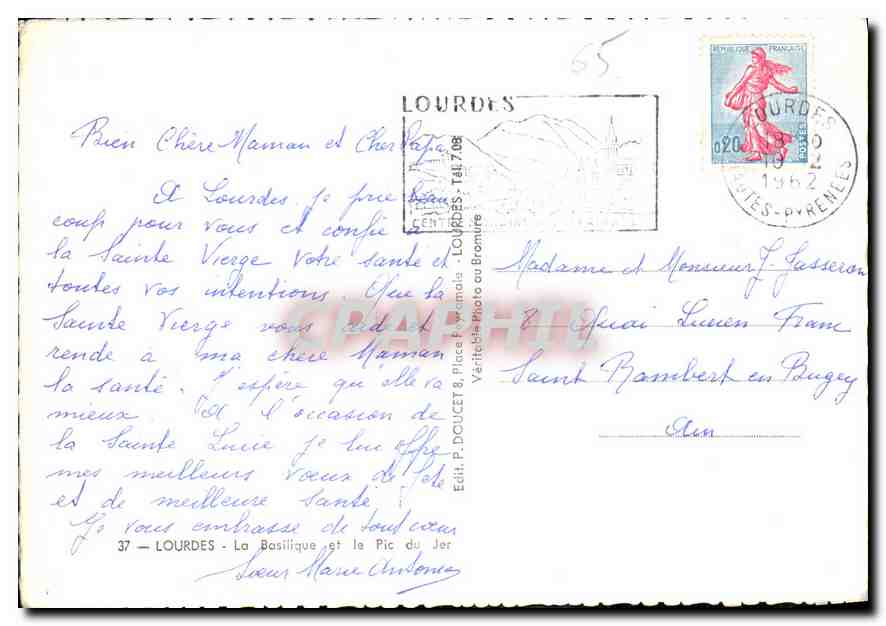 65
LOURDES
RÉPUBLIQUE FRANÇAISE
0,20
POSTES
LOURDES
18
10
1962
HAUTES-PYRENEES
Bien Chère Maman et Cher Papa
A Lourdes je prie beau
coup pour vous et confie à
la Sainte Vierge votre santé et
toutes vos intentions. Que la
Sainte Vierge vous aide et
rende à ma chère Maman
la santé. J'espère qu'elle va
mieux. A l'occasion de
la Sainte Lucie je lui offre
mes meilleurs vœux de fête
et de meilleure santé.
Je vous embrasse de tout cœur
37 — LOURDES - La Basilique et le Pic du Jer
Sœur Marie Antonia
Edit. P. DOUCET 8, Place Peyramale - LOURDES - Tél. 7.08
Véritable Photo au Bromure
CPAPHIL
Madame et Monsieur J. Jasseron
8 Quai Lucien Franc
Saint Rambert en Bugey
Ain